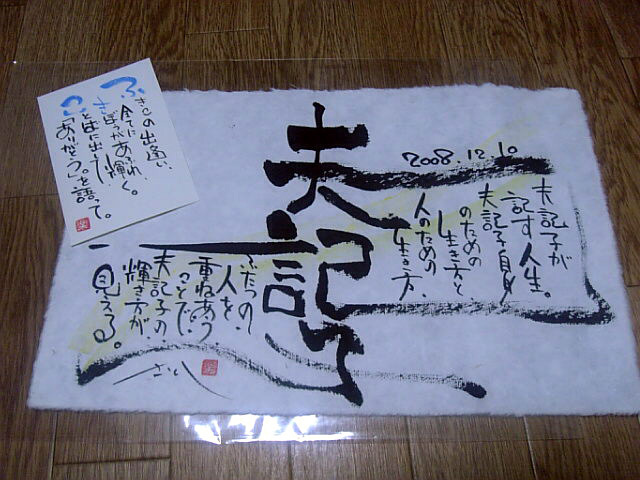 の出逢い、
全てにあふれ、
きぼうが輝く。
ことばに出し
「ありがとう。」を語って。
2008.12.10
夫記子
夫記子が
記す人生。
夫記子自身
のための
生き方と、
人のための
生き方、
ふたつの
人を、
重ねあう
ことで、
夫記子の、
輝き方が、
見える。